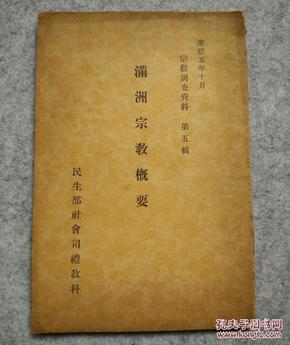 康德五年十月
宗教調査資料 第五輯
滿洲宗教概要
民生部社會司禮教科
孔夫子旧书网